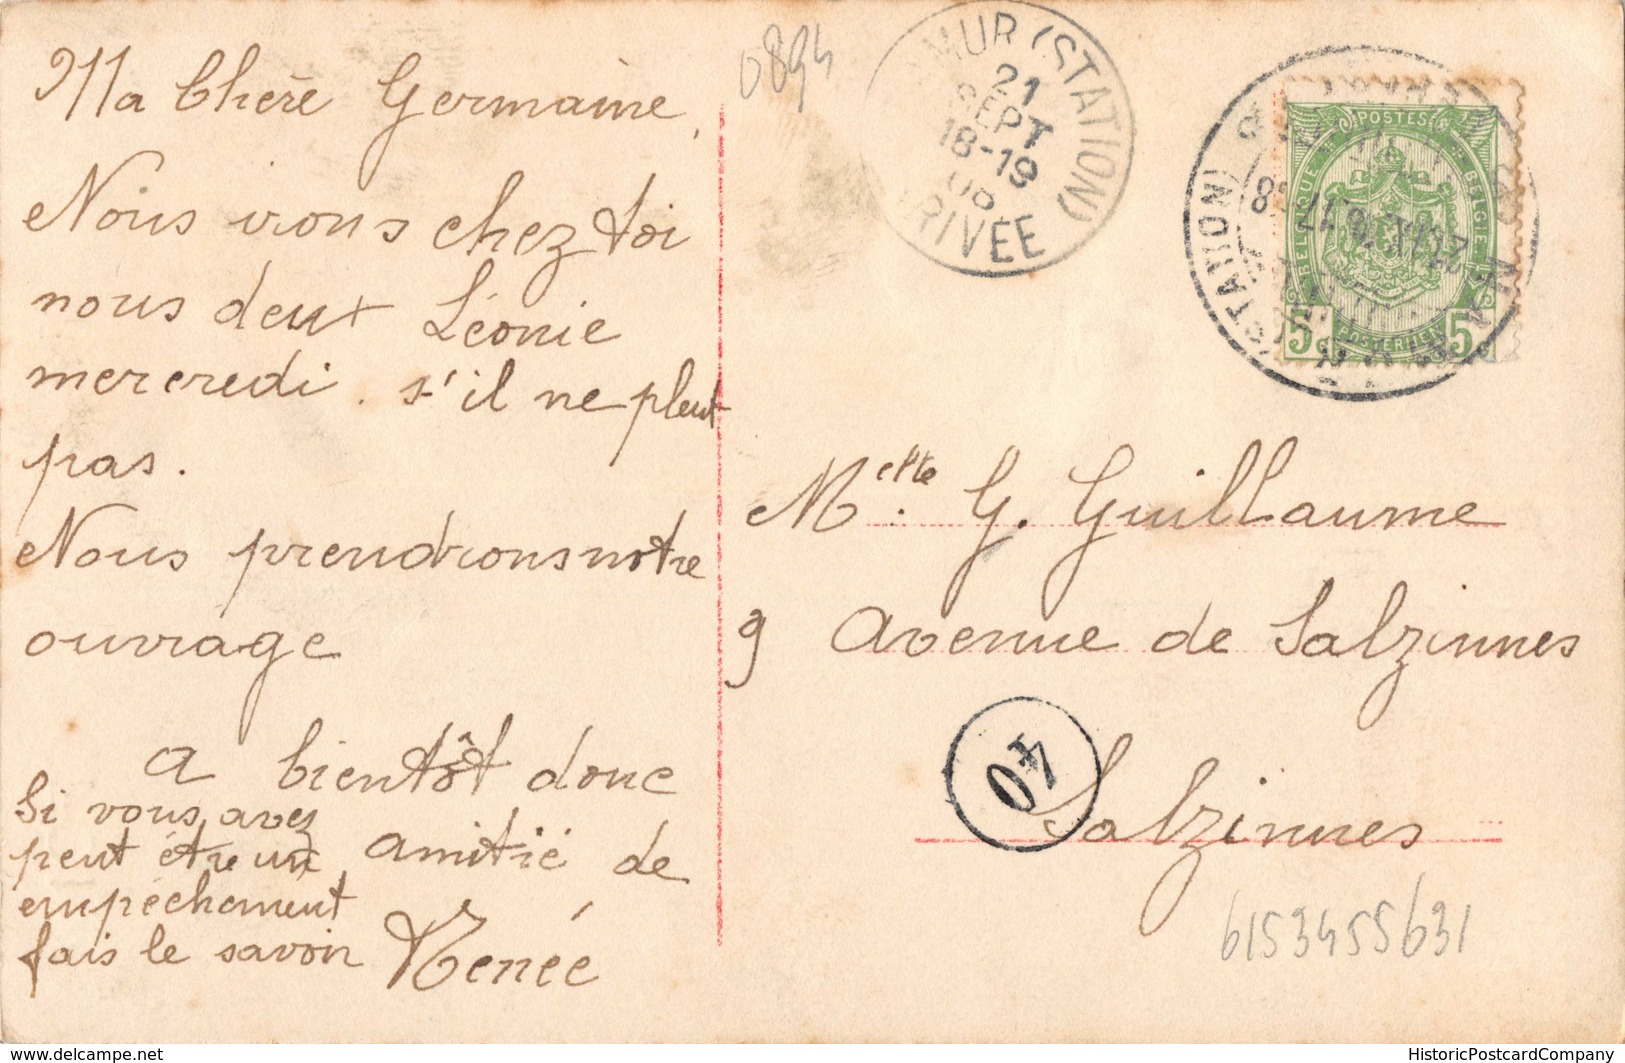 Ma Chère Germaine,
Nous irons chez toi
nous deux Léonie
mercredi. s'il ne pleut
pas.
Nous prendrons notre
ouvrage
A bientôt donc
amitié de
Renée
Si vous avez
peut être un
empéchement
fais le savoir
0894
MUR (STATION)
21
SEPT
18-19
08
RIVÉE
(STATION)
POSTES
BELGIQUE
BELGIE
5c
POSTERIJEN
5c
Melle. G. Guillaume
9 Avenue de Salzinnes
40
Salzinnes
6153455631
delcampe.net
HistoricPostcardCompany